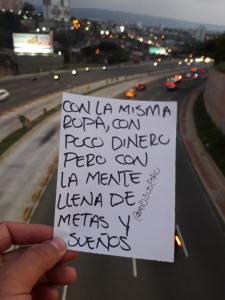 CON LA MISMA
ROPA, CON
POCO DINERO
PERO CON
LA MENTE
LLENA DE
METAS Y
SUEÑOS